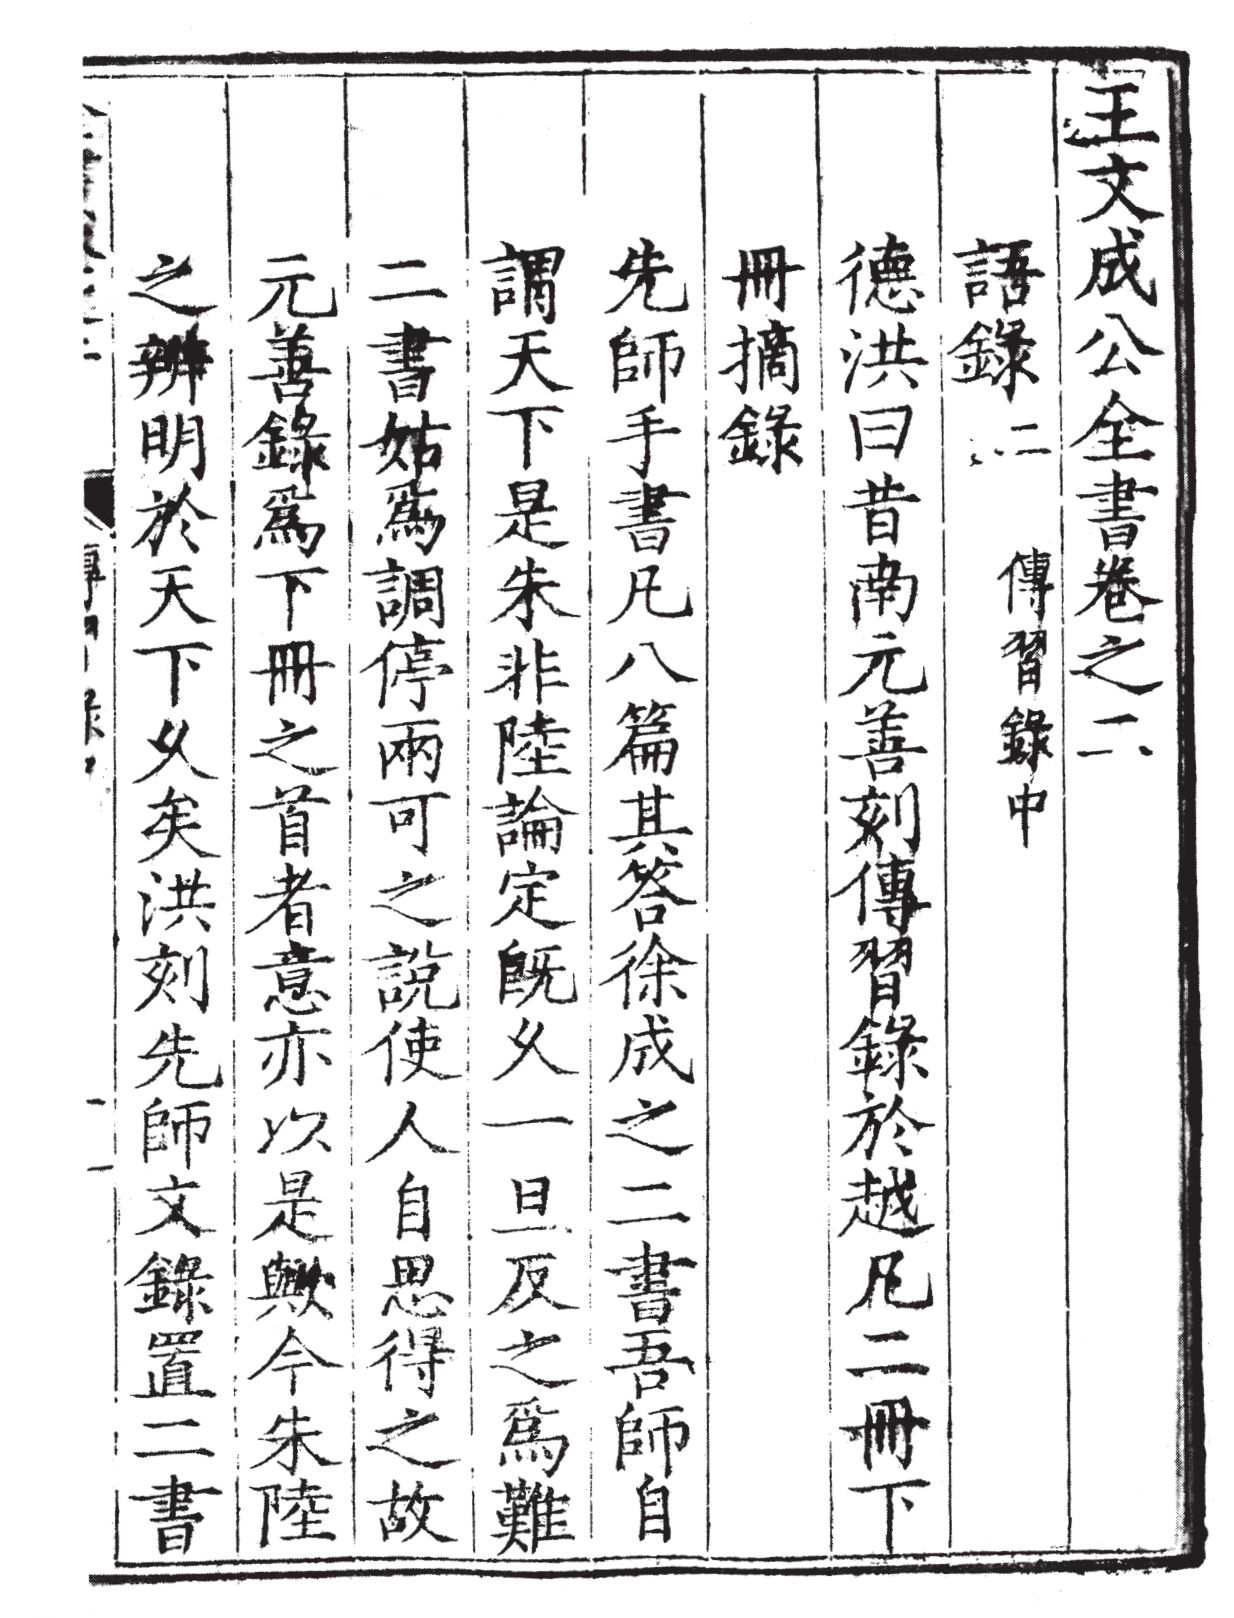 王文成公全書卷之二
語錄二 傳習錄中
德洪曰昔南元善刻傳習錄於越凡二冊下
冊摘錄
先師手書凡八篇其答徐成之二書吾師自
謂天下是朱非陸論定既久一旦反之為難
二書姑為調停兩可之說使人自思得之故
元善錄為下冊之首者意亦以是歟今朱陸
之辨明於天下久矣洪刻先師文錄置二書